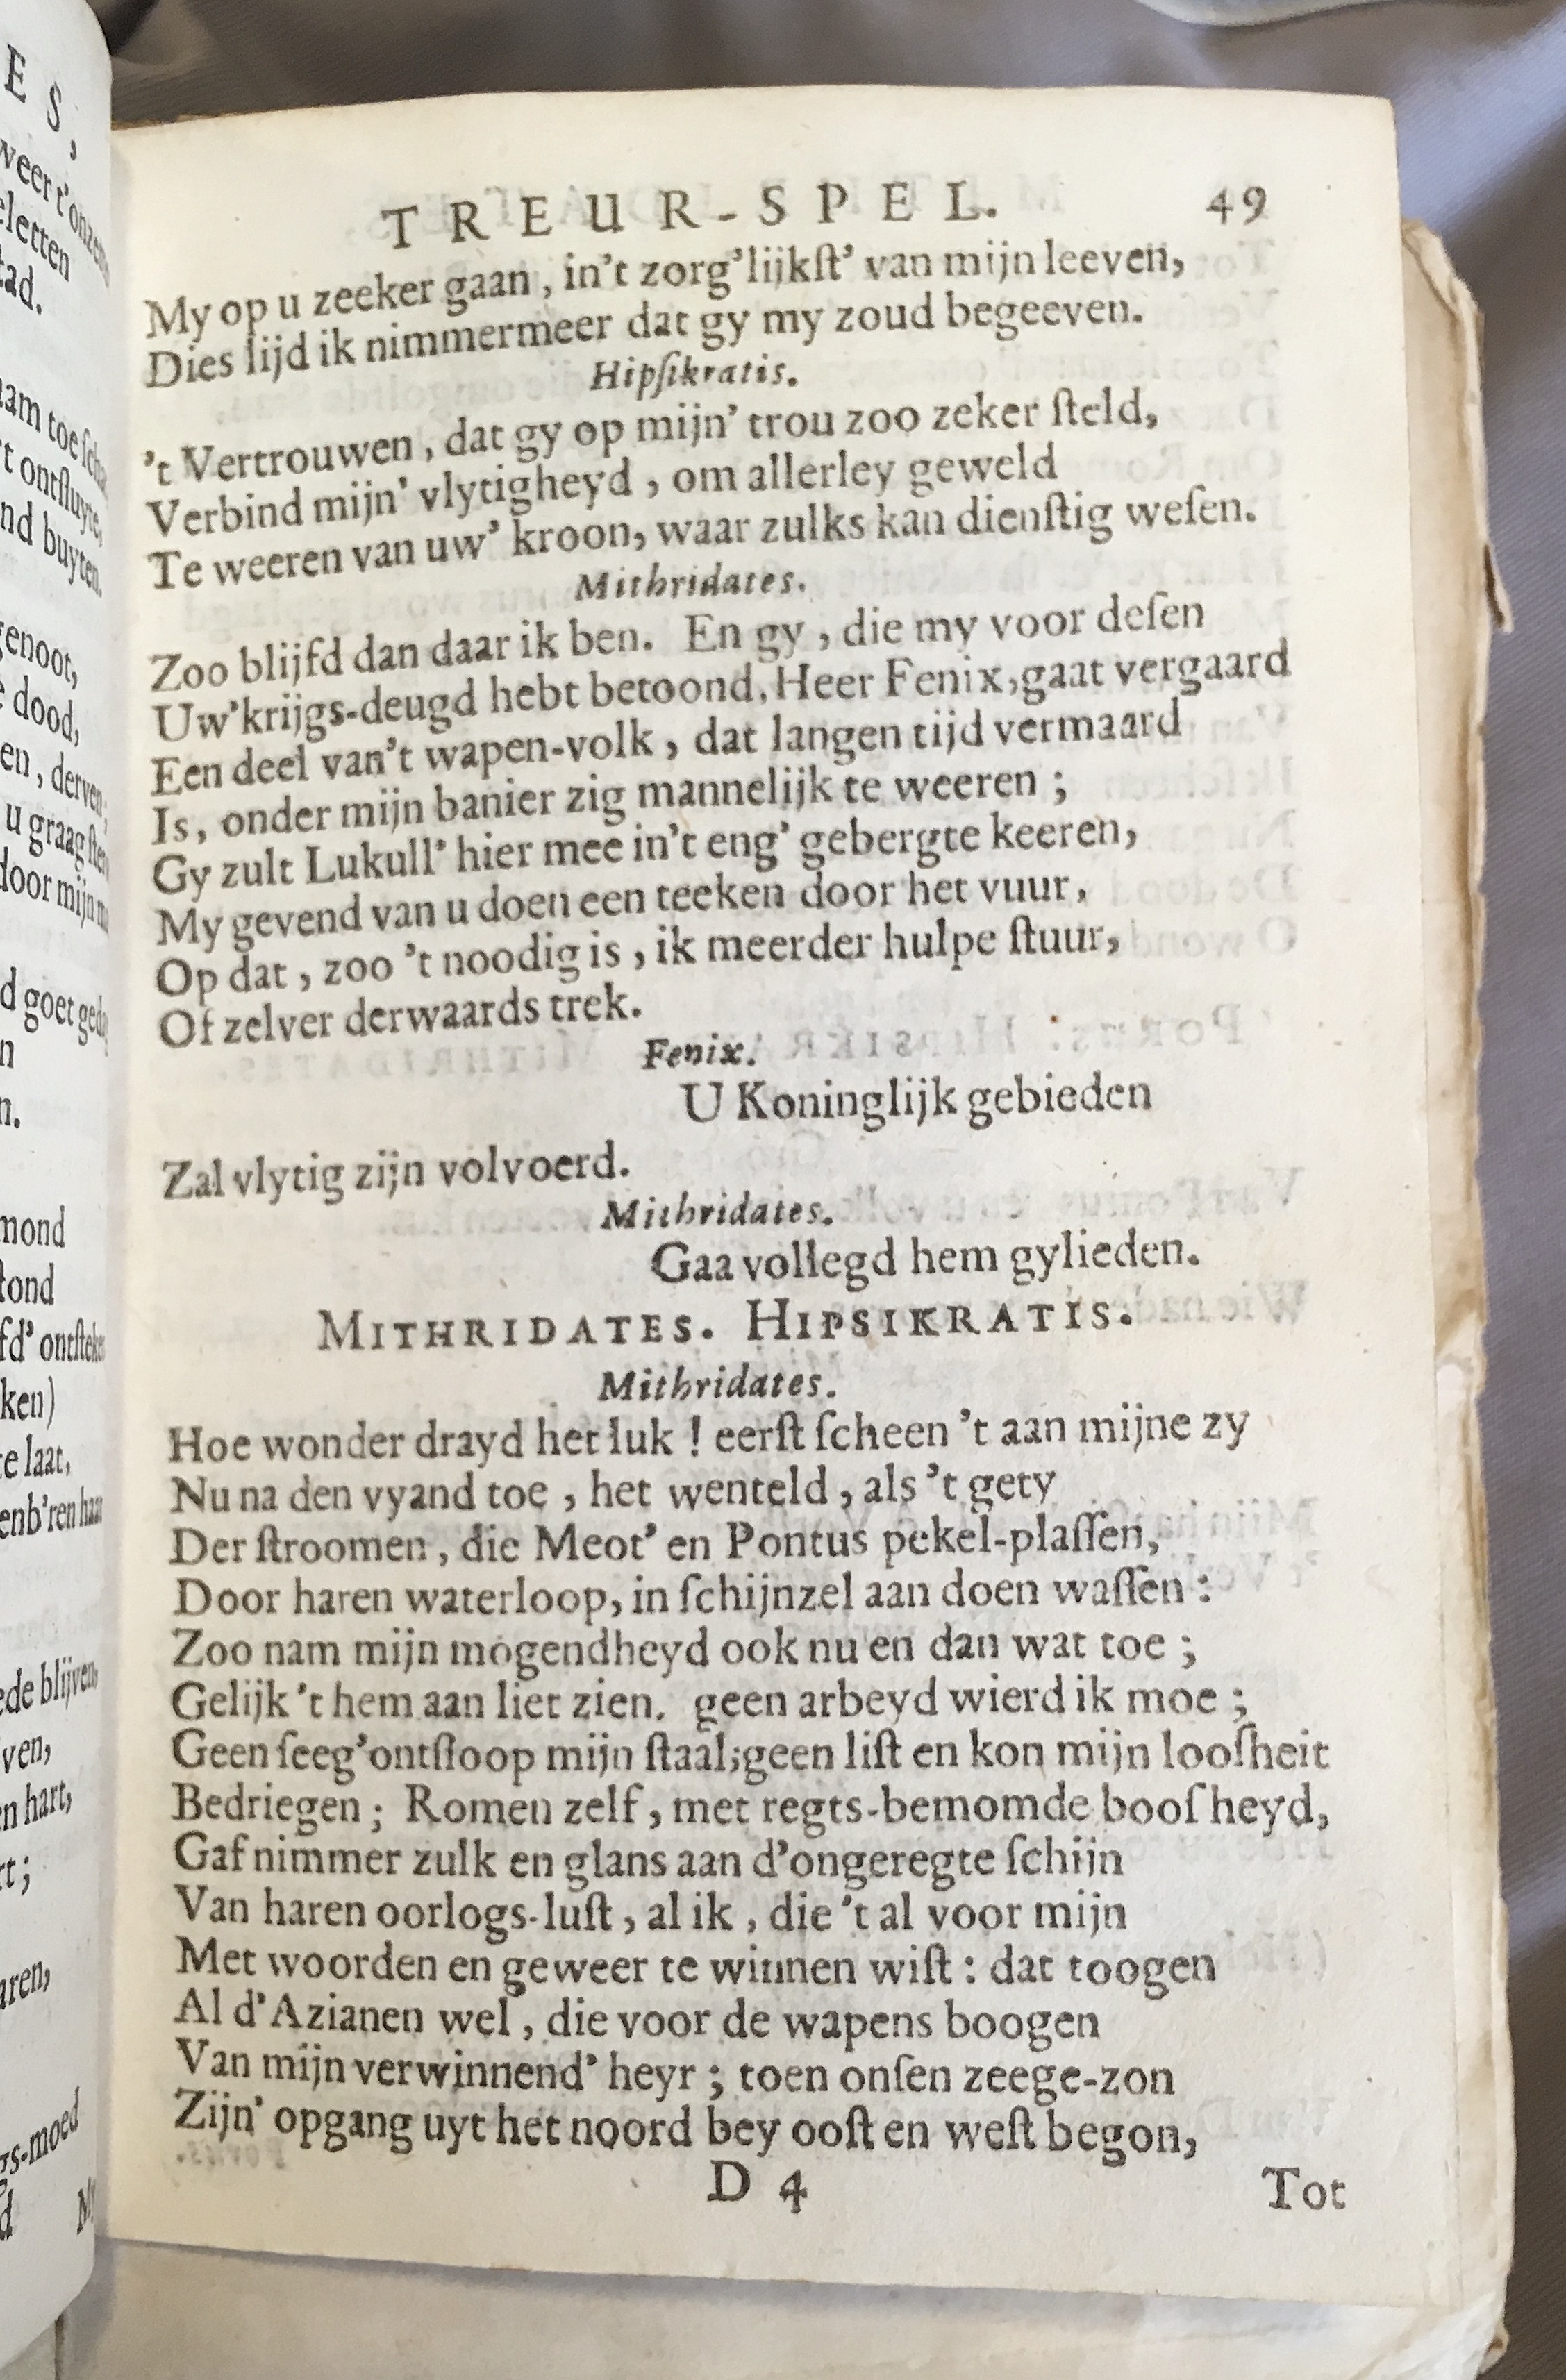 E S,
weer t'onzen
eletten
tad.
aam toe
't ontsluyte,
nd buyten.
genoot,
dood,
en, derven
u graag
door mijn
d goet
n
n.
mond
tond
fd' ontsteken
ken)
te laat,
enb'ren haar
ede blijven,
ven,
en hart,
rt;
aren,
gs-moed
d My
TREUR-SPEL. 49
My op u zeeker gaan, in't zorg'lijkſt' van mijn leeven,
Dies lijd ik nimmermeer dat gy my zoud begeeven.
Hipſikratis.
't Vertrouwen, dat gy op mijn' trou zoo zeker ſteld,
Verbind mijn' vlytigheyd, om allerley geweld
Te weeren van uw' kroon, waar zulks kan dienſtig weſen.
Mithridates.
Zoo blijfd dan daar ik ben. En gy, die my voor deſen
Uw'krijgs-deugd hebt betoond, Heer Fenix, gaat vergaard
Een deel van't wapen-volk, dat langen tijd vermaard
Is, onder mijn banier zig mannelijk te weeren;
Gy zult Lukull' hier mee in't eng' gebergte keeren,
My gevend van u doen een teeken door het vuur,
Op dat, zoo 't noodig is, ik meerder hulpe ſtuur,
Of zelver derwaards trek.
Fenix.
U Koninglijk gebieden
Zal vlytig zijn volvoerd.
Mithridates.
Gaa vollegd hem gylieden.
MITHRIDATES. HIPSIKRATIS.
Mithridates.
Hoe wonder drayd het luk! eerſt ſcheen 't aan mijne zy
Nu na den vyand toe, het wenteld, als 't gety
Der ſtroomen, die Meot' en Pontus pekel-plaſſen,
Door haren waterloop, in ſchijnzel aan doen waſſen:
Zoo nam mijn mogendheyd ook nu en dan wat toe;
Gelijk 't hem aan liet zien. geen arbeyd wierd ik moe;
Geen ſeeg'ontſloop mijn ſtaal; geen liſt en kon mijn looſheit
Bedriegen; Romen zelf, met regts-bemomde booſheyd,
Gaf nimmer zulk en glans aan d'ongeregte ſchijn
Van haren oorlogs-luſt, al ik, die 't al voor mijn
Met woorden en geweer te winnen wiſt: dat toogen
Al d'Azianen wel, die voor de wapens boogen
Van mijn verwinnend' heyr; toen onſen zeege-zon
Zijn' opgang uyt het noord bey ooſt en weſt begon,
D 4 Tot